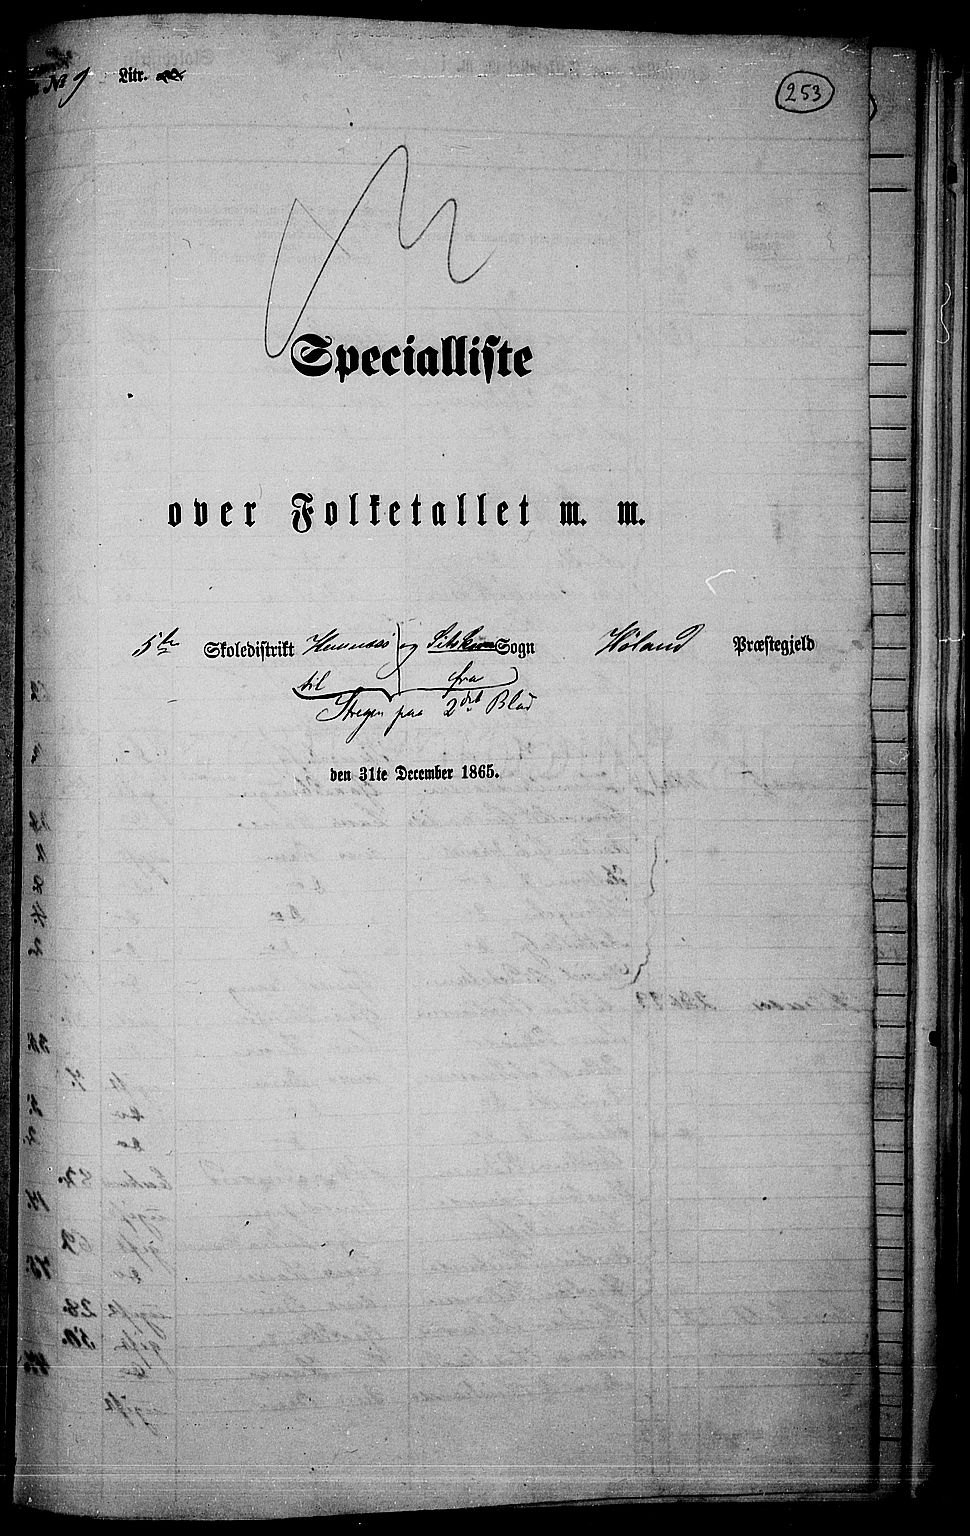 No 9 Litr.
253
Specialliste
over Folketallet m. m.
5te Skoledistrikt Hemnæs og Setskoug Sogn Høland Præstegjeld
til fra
Stregen paa 2det Blad
den 31te December 1865.